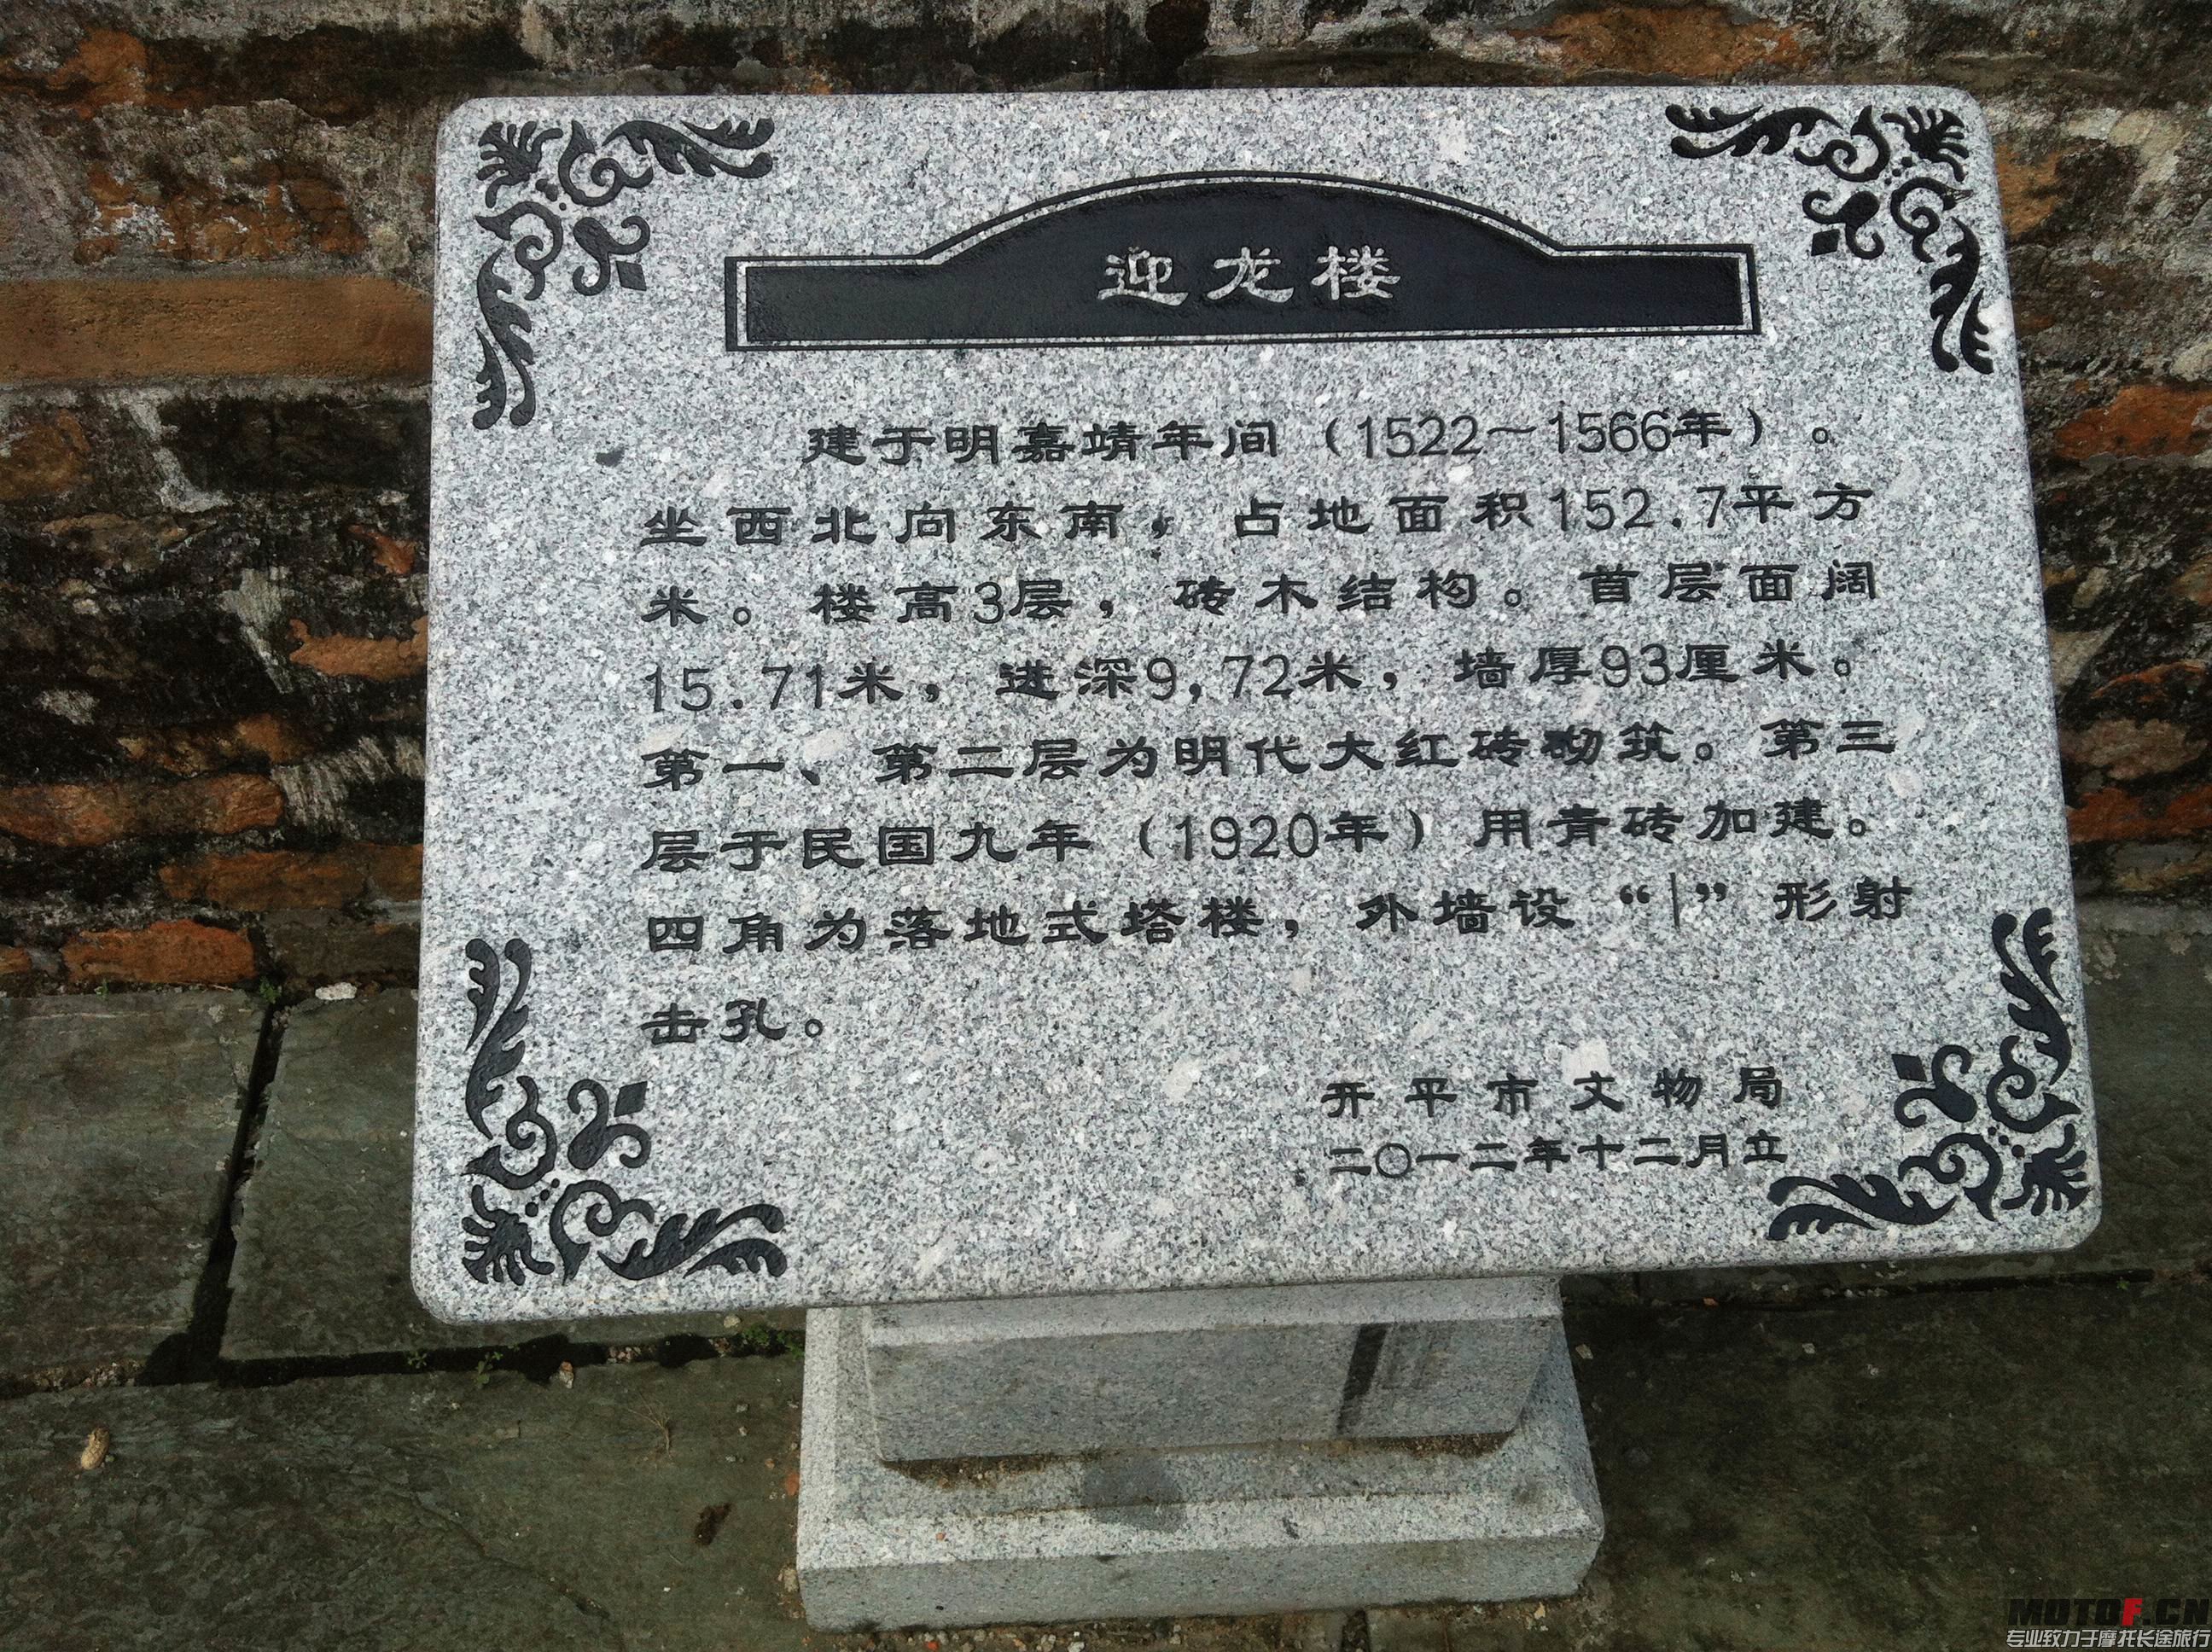 迎龙楼
建于明嘉靖年间（1522～1566年）。
坐西北向东南，占地面积152.7平方
米。楼高3层，砖木结构。首层面阔
15.71米，进深9,72米，墙厚93厘米。
第一、第二层为明代大红砖砌筑。第三
层于民国九年（1920年）用青砖加建。
四角为落地式塔楼，外墙设“|”形射
击孔。
开平市文物局
二〇一二年十二月立
MOTOF.CN
专业致力于摩托长途旅行